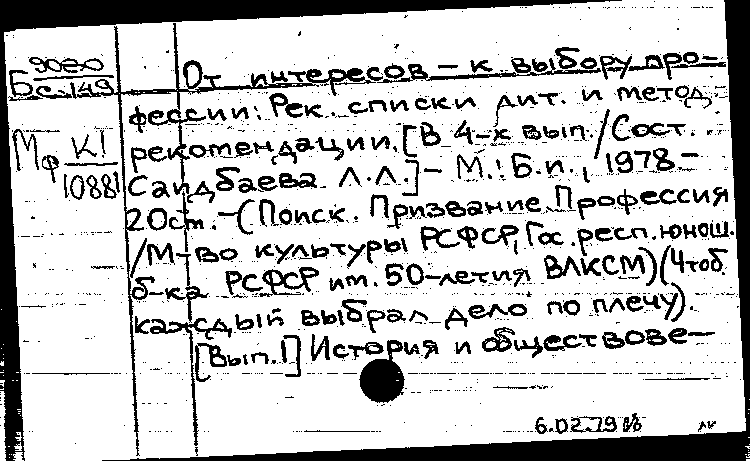 9080
Бс.149
От интересов – к выбору про-
фессии: Рек. списки лит. и метод.
рекомендации. [В 4-х вып. / Сост.
Саидбаева Л.Л.] – М.: Б.и., 1978 –
20см. – (Поиск. Призвание. Профессия
/М-во культуры РСФСР, Гос. респ. юнош.
б-ка РСФСР им. 50-летия ВЛКСМ) (Чтоб
каждый выбрал дело по плечу).
[Вып. 1] История и обществове-
Мф К1
10881
6.02.79